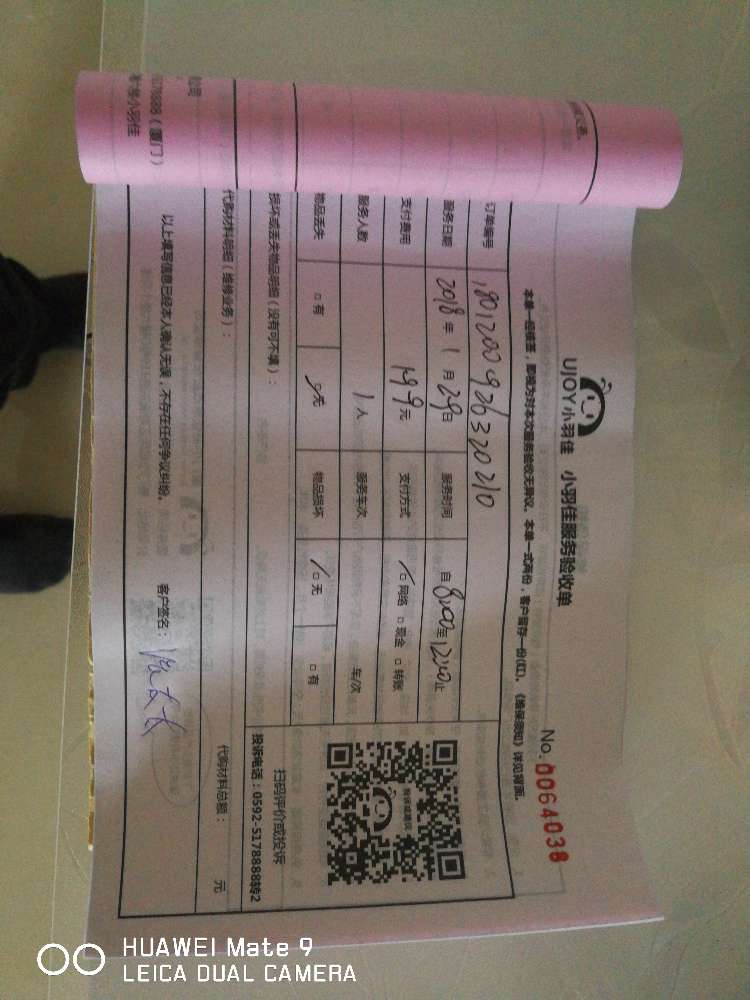 UJOY小羽佳 小羽佳服务验收单
No. 0064038
本单一经签签，即视为对本次服务验收无异议。本单一式两份，客户留存一份(红)。《维保须知》详见背面。
订单编号 180120092632020
服务日期 2018年1月29日 服务时间 自8:00至12:00止
支付费用 199元 支付方式 □网络 □现金 □转账
服务人数 1人 服务车次 车/次
物品丢失 □有 □无 物品损坏 □无 □有
损坏或丢失物品明细（没有可不填）：
扫码评价或投诉
投诉电话：0592-5178888转2
代购材料明细（维修业务）：
代购材料总额： 元
以上填写信息已经本人确认无误，不存在任何争议纠纷。
客户签名：
（厦门）
小羽佳
HUAWEI Mate 9
LEICA DUAL CAMERA